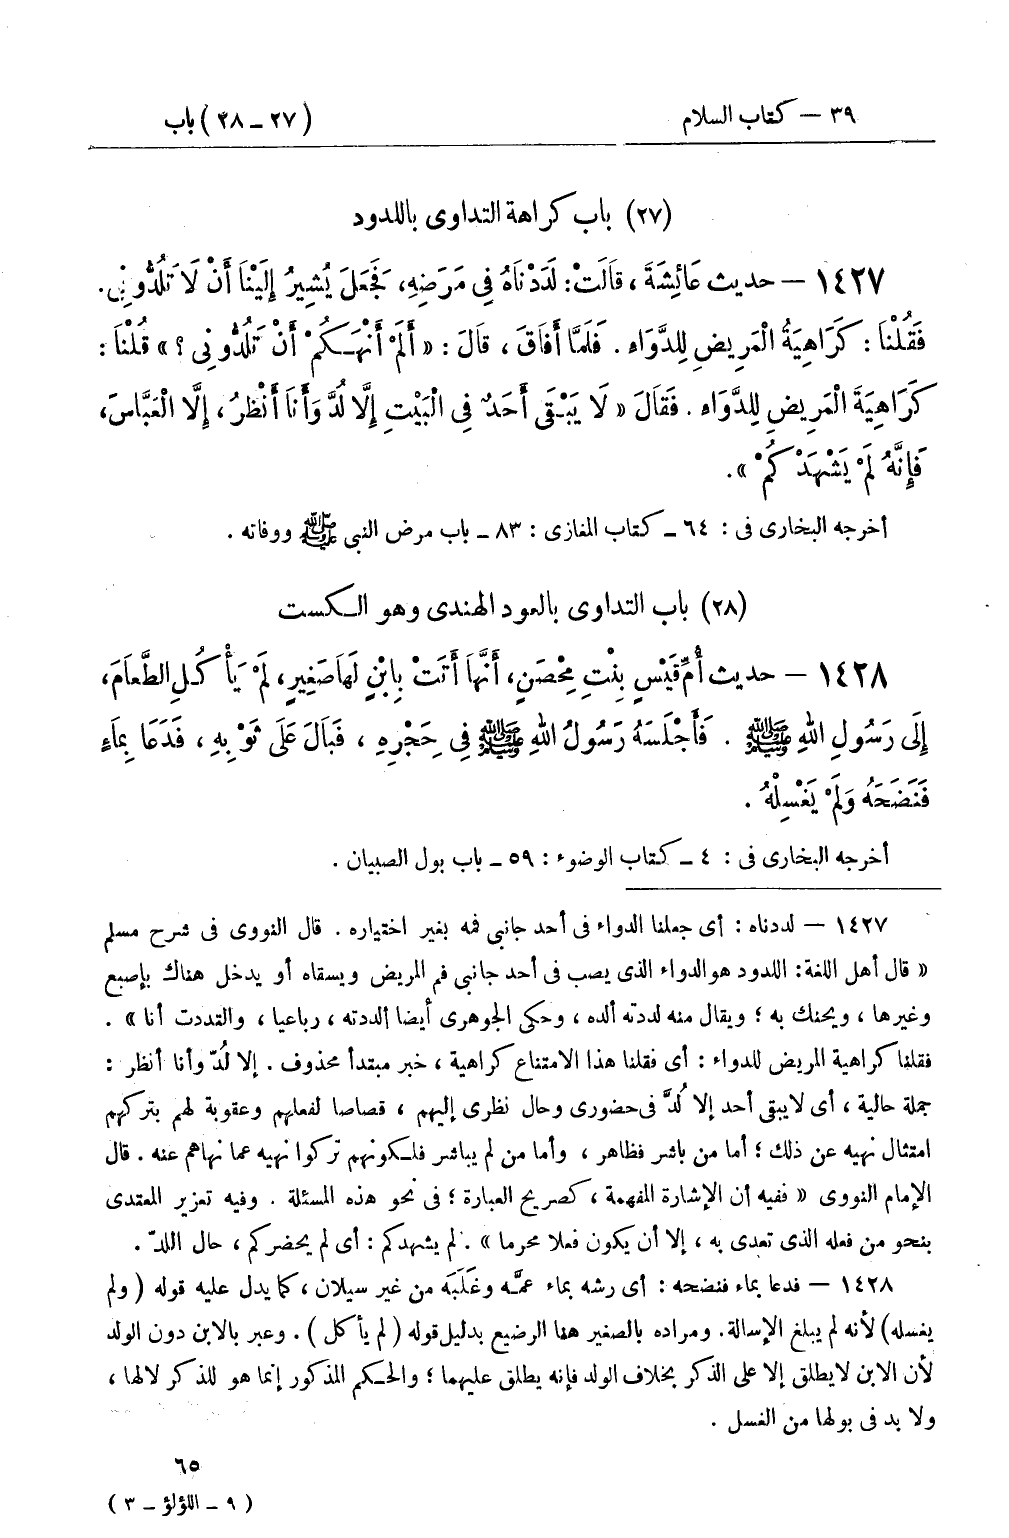 ٣٩ — كتاب السلام (٢٧ – ٢٨) باب
(٢٧) باب كراهة التداوى باللدود
١٤٢٧ — حديث عَائِشَةَ ، قَالَتْ: لَدَدْنَاهُ فِي مَرَضِهِ، فَجَعَلَ يُشِيرُ إِلَيْنَا أَنْ لَا تَلُدُّونِي.
فَقُلْنَا : كَرَاهِيَةُ الْمَرِيضِ لِلدَّوَاءِ . فَلَمَّا أَفَاقَ ، قَالَ : « أَلَمْ أَنْهَكُمْ أَنْ تَلُدُّونِي ؟ » قُلْنَا :
كَرَاهِيَةَ الْمَرِيضِ لِلدَّوَاءِ . فَقَالَ « لَا يَبْقَى أَحَدٌ فِي الْبَيْتِ إِلَّا لُدَّ وَأَنَا أَنْظُرُ ، إِلَّا الْعَبَّاسَ،
فَإِنَّهُ لَمْ يَشْهَدْكُمْ » .
أخرجه البخارى فى : ٦٤ – كتاب المغازى : ٨٣ – باب مرض النبي ﷺ ووفاته .
(٢٨) باب التداوى بالعود الهندى وهو الكست
١٤٢٨ — حديث أُمِّ قَيْسٍ بِنْتِ مِحْصَنٍ، أَنَّهَا أَتَتْ بِابْنٍ لَهَا صَغِيرٍ، لَمْ يَأْكُلِ الطَّعَامَ،
إِلَى رَسُولِ اللهِ ﷺ . فَأَجْلَسَهُ رَسُولُ اللهِ ﷺ فِي حِجْرِهِ ، فَبَالَ عَلَى ثَوْبِهِ ، فَدَعَا بِمَاءٍ
فَنَضَحَهُ وَلَمْ يَغْسِلْهُ .
أخرجه البخارى فى : ٤ – كتاب الوضوء : ٥٩ – باب بول الصبيان .
١٤٢٧ — لددناه : أى جعلنا الدواء فى أحد جانبي فمه بغير اختياره . قال النووى فى شرح مسلم
« قال أهل اللغة: اللدود هو الدواء الذى يصب فى أحد جانبي فم المريض ويسقاه أو يدخل هناك بإصبع
وغيرها ، ويحنك به ؛ ويقال منه لددته ألده ، وحكى الجوهرى أيضا ألددته ، رباعيا ، والتددت أنا » .
فقلنا كراهية المريض للدواء : أى فقلنا هذا الامتناع كراهية ، خبر مبتدأ محذوف . إلا لُدّ وأنا أنظر :
جملة حالية ، أى لا يبقى أحد إلا لُدَّ فى حضورى وحال نظرى إليهم ، قصاصا لفعلهم وعقوبة لهم بتركهم
امتثال نهيه عن ذلك ؛ أما من باشر فظاهر ، وأما من لم يباشر فلكونهم تركوا نهيه عما نهاهم عنه . قال
الإمام النووى « ففيه أن الإشارة المفهمة ، كصريح العبارة ؛ فى نحو هذه المسئلة . وفيه تعزير المعتدى
بنحو من فعله الذى تعدى به ، إلا أن يكون فعلا محرما » . لم يشهدكم : أى لم يحضركم ، حال اللدّ .
١٤٢٨ — فدعا بماء فنضحه : أى رشه بماء عمّه وغَلَبَه من غير سيلان ، كما يدل عليه قوله ( ولم
يغسله) لأنه لم يبلغ الإسالة. ومراده بالصغير هنا الرضيع بدليل قوله (لم يأكل) . وعبر بالابن دون الولد
لأن الابن لا يطلق إلا على الذكر بخلاف الولد فإنه يطلق عليهما ؛ والحكم المذكور إنما هو للذكر لا لها ،
ولا بد فى بولها من الغسل .
٦٥
( ٩ – اللؤلؤ – ٣ )